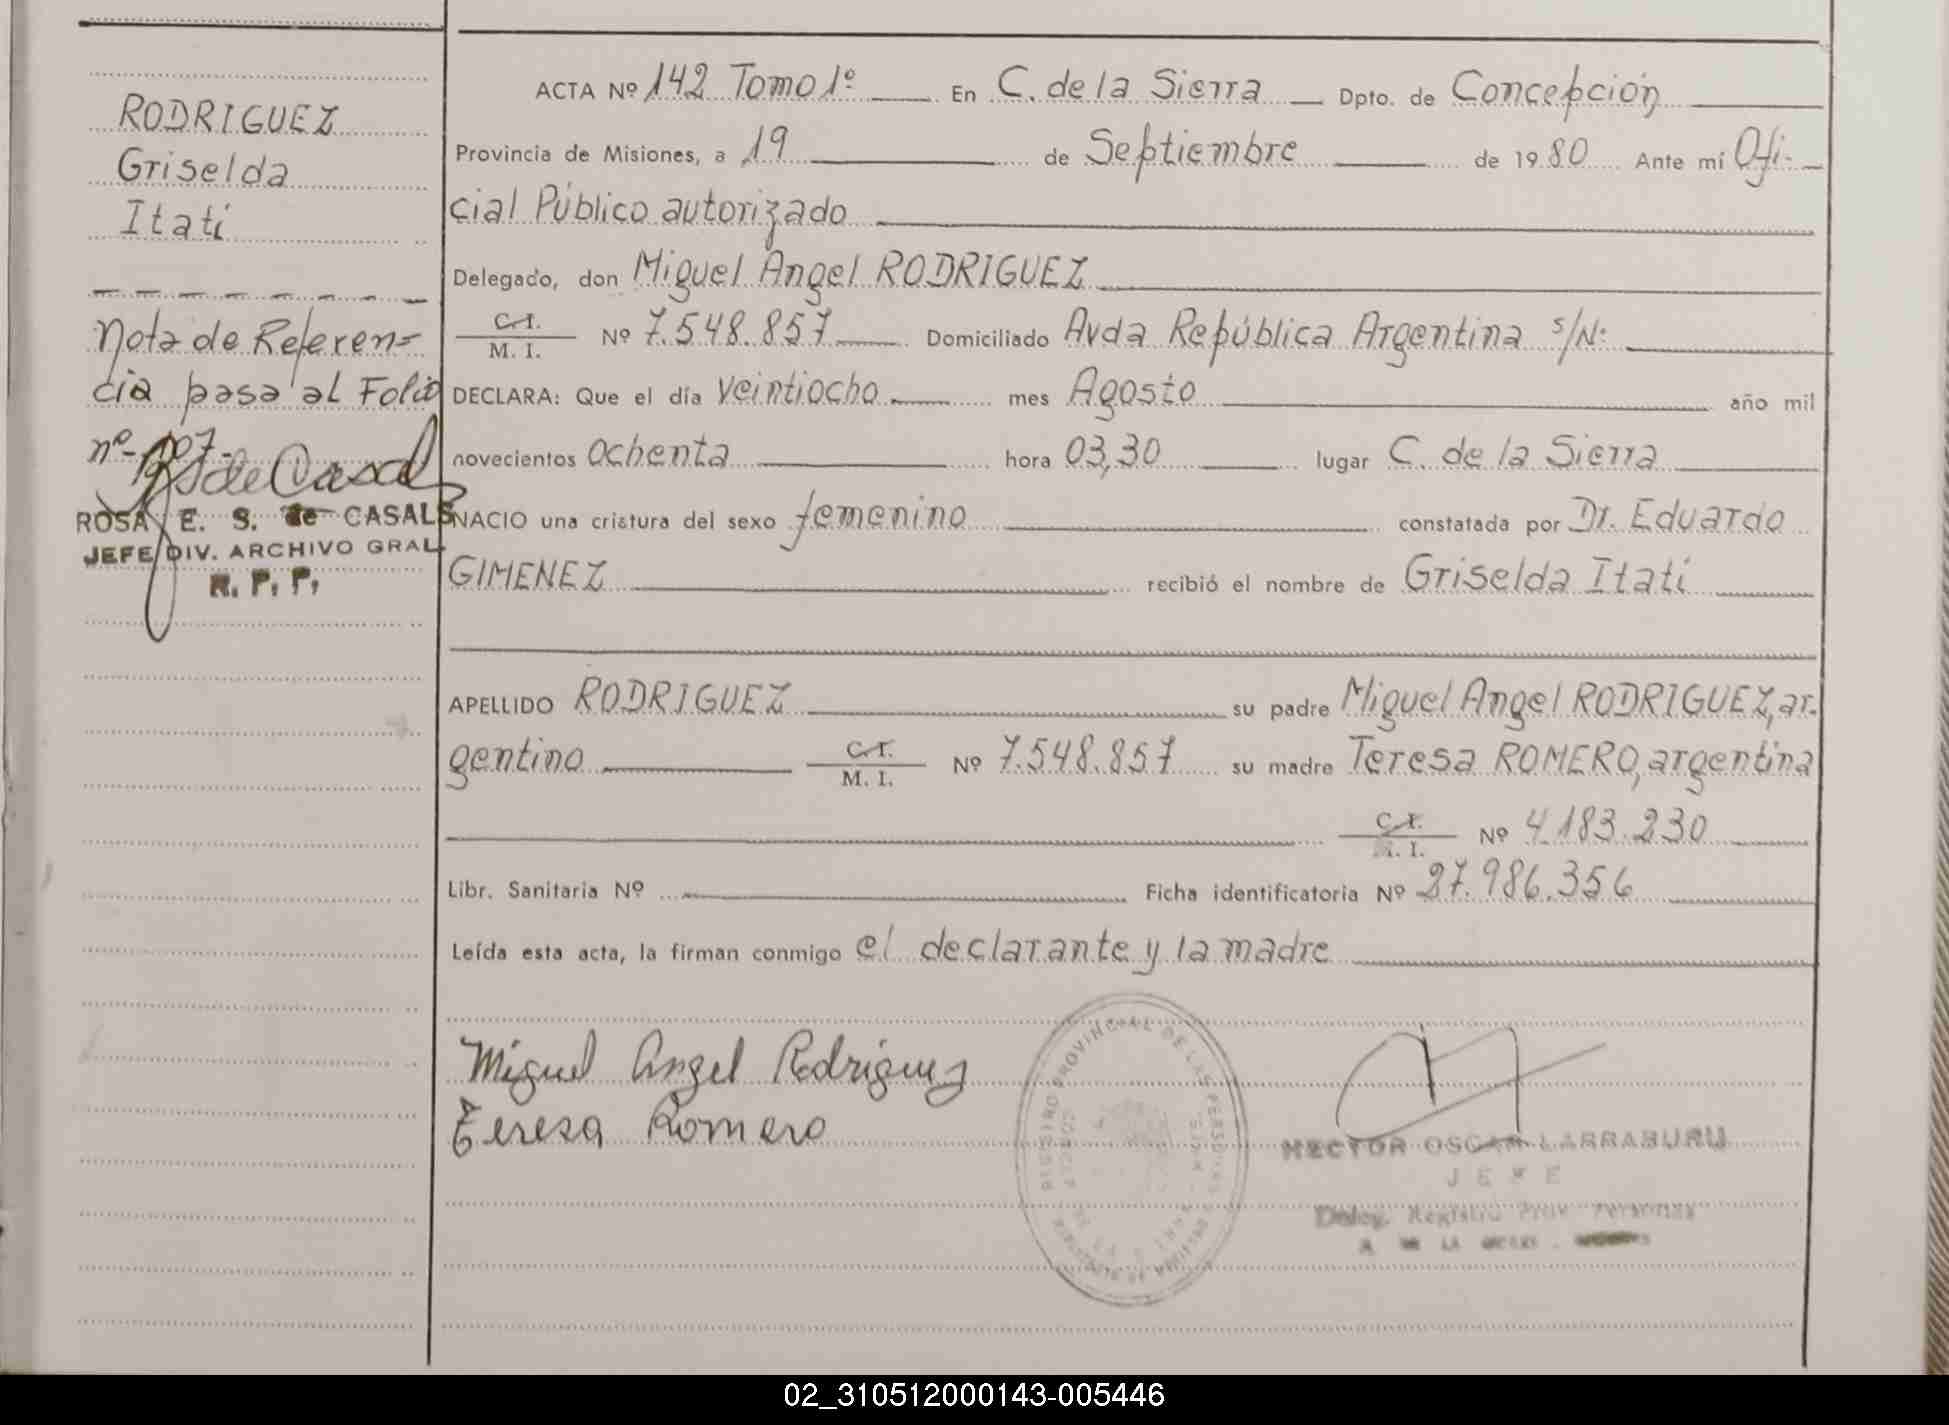 RODRIGUEZ
Griselda
Itatí
Nota de Referen-
cia pasa al Folio
nº-107-
ROSA E. S. de CASALS
JEFE DIV. ARCHIVO GRAL.
R. P. P.
ACTA Nº 142 Tomo 1º En C. de la Sierra Dpto. de Concepción
Provincia de Misiones, a 19 de Septiembre de 1980 Ante mí Ofi-
cial Público autorizado
Delegado, don Miguel Angel RODRIGUEZ
C.I.
M. I. Nº 7.548.857 Domiciliado Avda República Argentina s/N:
DECLARA: Que el día veintiocho mes Agosto año mil
novecientos ochenta hora 03,30 lugar C. de la Sierra
NACIO una cristura del sexo femenino constatada por Dr. Eduardo
GIMENEZ recibió el nombre de Griselda Itatí
APELLIDO RODRIGUEZ su padre Miguel Angel RODRIGUEZ, ar-
gentino C.I.
M. I. Nº 7.548.857 su madre Teresa ROMERO, argentina
C.I.
M. I. Nº 4.183.230
Libr. Sanitaria Nº Ficha identificatoria Nº 27.986.356
Leída esta acta, la firman conmigo el declarante y la madre
Miguel Angel Rodriguez
Teresa Romero
REGISTRO PROVINCIAL DE LAS PERSONAS
HECTOR OSCAR LARRABURU
JEFE
Deleg. Registro Prov. Personas
02_310512000143-005446